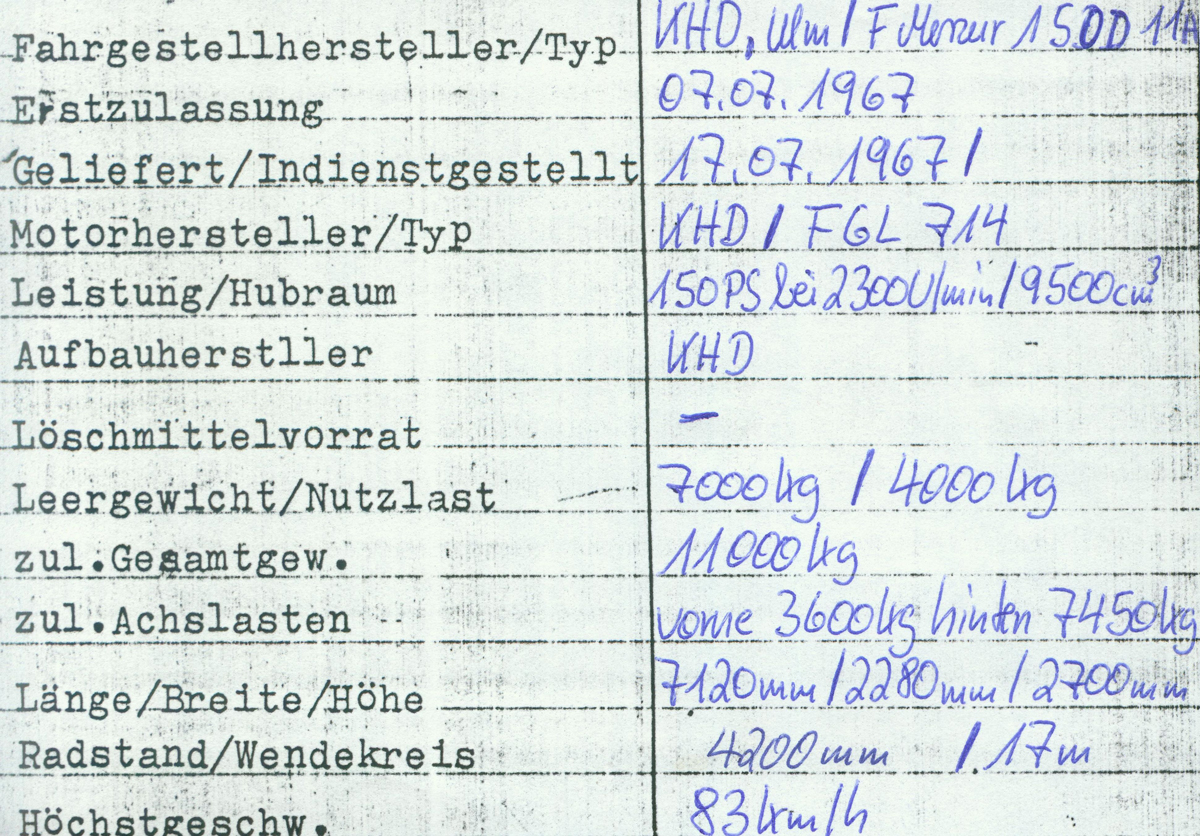 Fahrgestellhersteller/Typ KHD, Ulm / F Merkur 150D 11A
Erstzulassung 07.07.1967
Geliefert/Indienstgestellt 17.07.1967 /
Motorhersteller/Typ KHD / F6L 714
Leistung/Hubraum 150PS bei 2300U/min / 9500cm³
Aufbauherstller KHD
Löschmittelvorrat —
Leergewicht/Nutzlast 7000kg / 4000kg
zul.Gesamtgew. 11000kg
zul.Achslasten vorne 3600kg hinten 7450kg
Länge/Breite/Höhe 7120mm/2280mm/2700mm
Radstand/Wendekreis 4200mm / 17m
Höchstgeschw. 83km/h